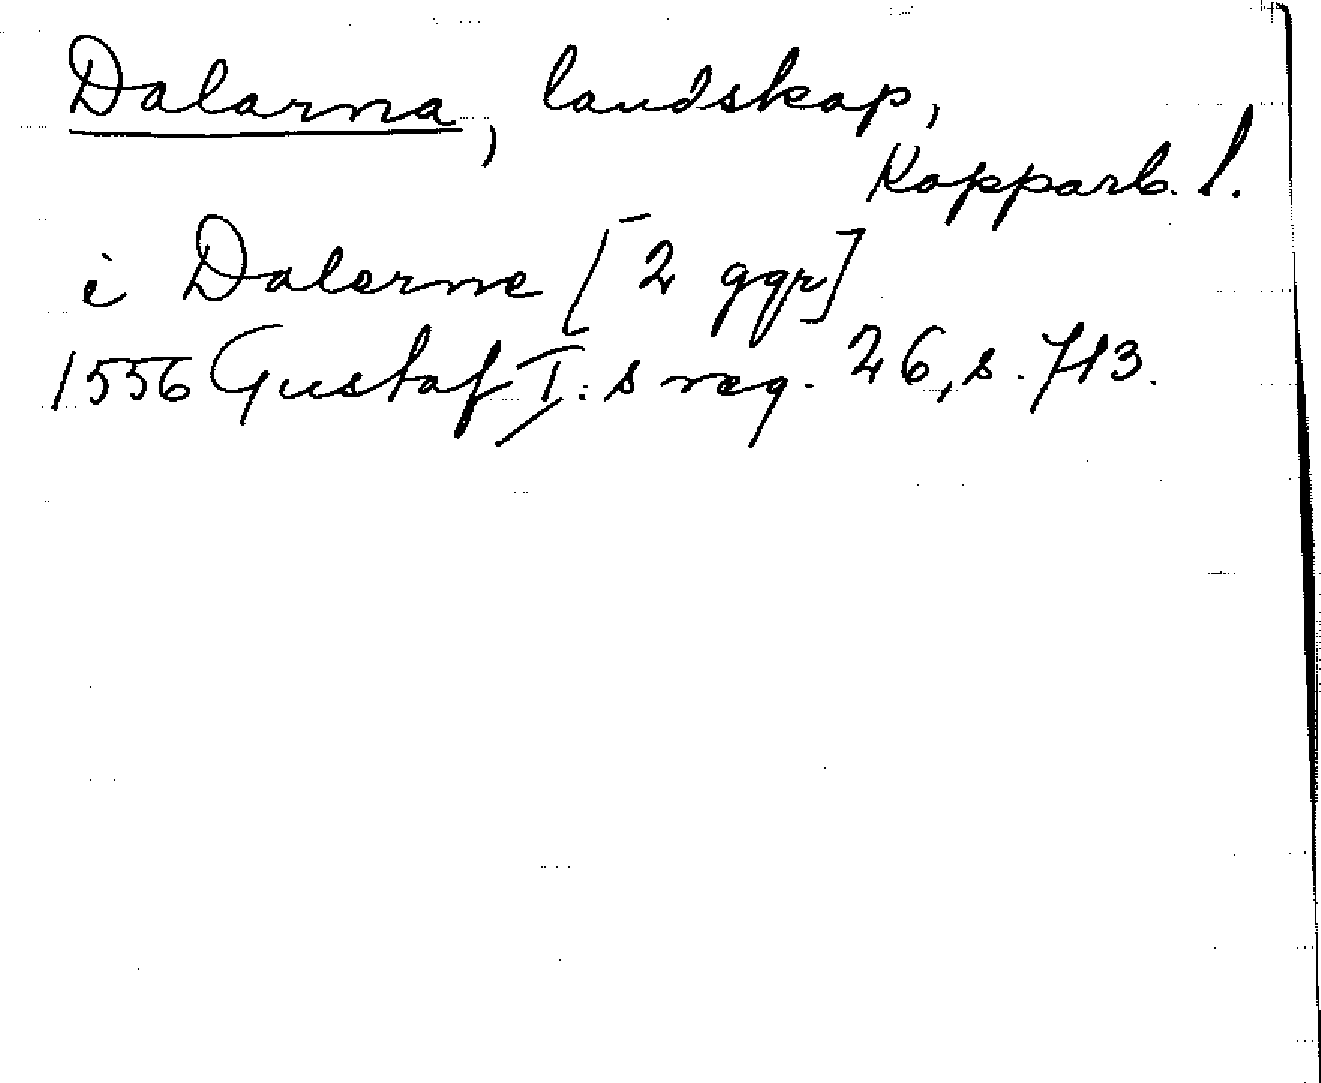 Dalarna, landskap,
Kopparb. l.
i Dalerne [2 ggr]
1556 Gustaf I:s reg. 26, s. 713.